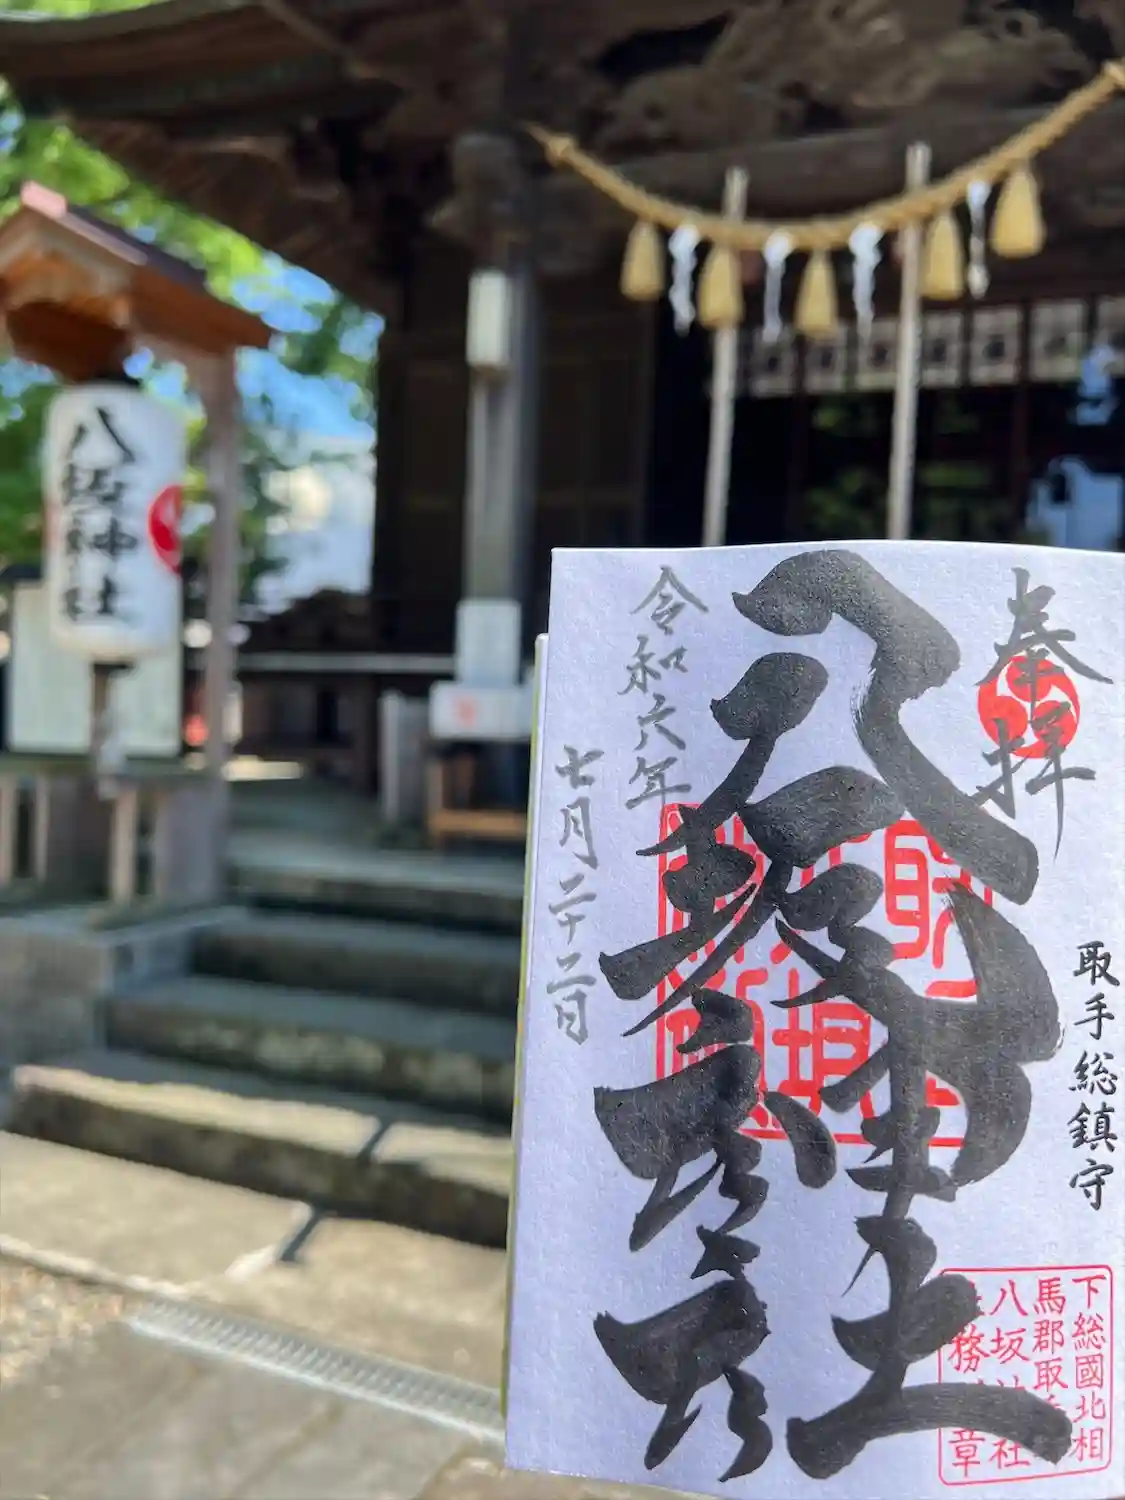 八坂神社
奉拝
取手総鎮守
八坂神社
令和六年
七月二十二日
下総國北相
馬郡取手
八坂神社
務 章